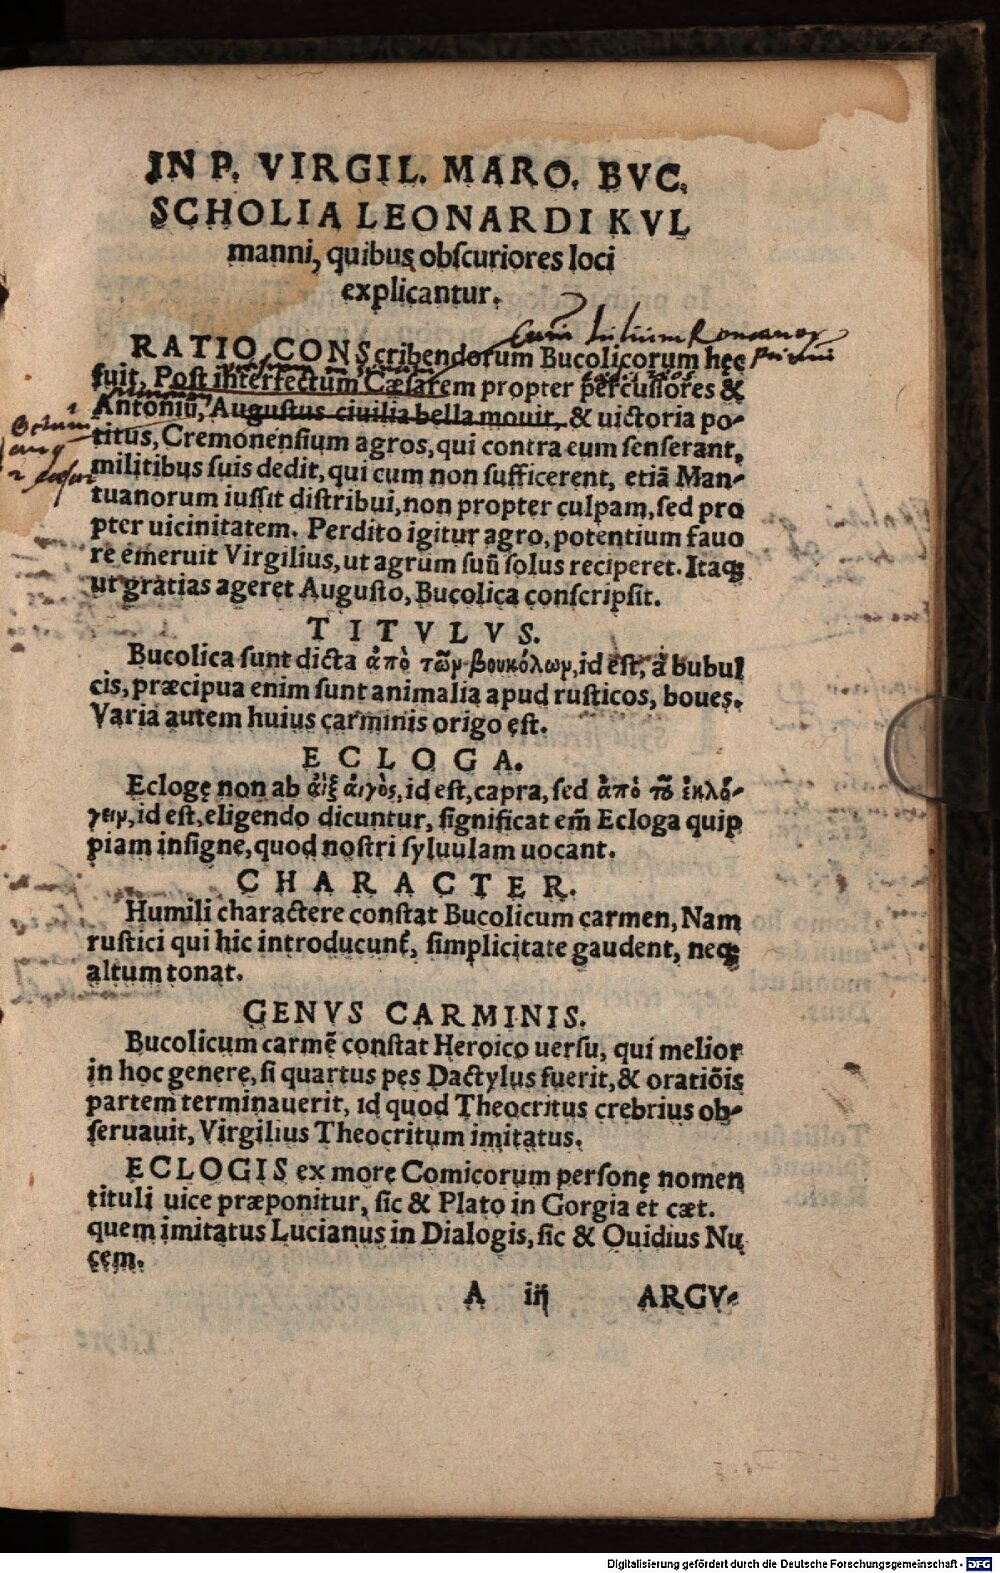 IN P. VIRGIL. MARO. BVC.
SCHOLIA LEONARDI KVL
manni, quibus obſcuriores loci
explicantur.
RATIO CONScribendorum Bucolicorum hęc
fuit, Poſt interfectum Cæſarem propter percuſſores &
Antoniũ, Auguſtus ciuilia bella mouit, & uictoria po-
titus, Cremonenſium agros, qui contra eum ſenſerant,
militibus ſuis dedit, qui cum non ſufficerent, etiã Man-
tuanorum iuſſit diſtribui, non propter culpam, ſed pro
pter uicinitatem. Perdito igitur agro, potentium fauo
re emeruit Virgilius, ut agrum ſuũ ſolus reciperet. Itaqȝ
ut gratias ageret Auguſto, Bucolica conſcripſit.
TITVLVS.
Bucolica ſunt dicta ἀπὸ τῶν βουκόλων, id eſt, à bubul
cis, præcipua enim ſunt animalia apud ruſticos, boues.
Varia autem huius carminis origo eſt.
ECLOGA.
Eclogę non ab ἀὶξ ἀιγὸς, id eſt, capra, ſed ἀπὸ τοῦ ἐκλό-
γειν, id eſt, eligendo dicuntur, ſignificat em̃ Ecloga quip
piam inſigne, quod noſtri ſyluulam uocant.
CHARACTER.
Humili charactere conſtat Bucolicum carmen, Nam
ruſtici qui hic introducunt̃, ſimplicitate gaudent, neqȝ
altum tonat.
GENVS CARMINIS.
Bucolicum carmẽ conſtat Heroico uerſu, qui melior
in hoc genere, ſi quartus pes Dactylus fuerit, & oratiõis
partem terminauerit, id quod Theocritus crebrius ob-
ſeruauit, Virgilius Theocritum imitatus.
ECLOGIS ex more Comicorum perſonę nomen
tituli uice præponitur, ſic & Plato in Gorgia et cæt.
quem imitatus Lucianus in Dialogis, ſic & Ouidius Nu
cem.
A iij ARGV-
Digitalisierung gefördert durch die Deutsche Forschungsgemeinschaft - DFG